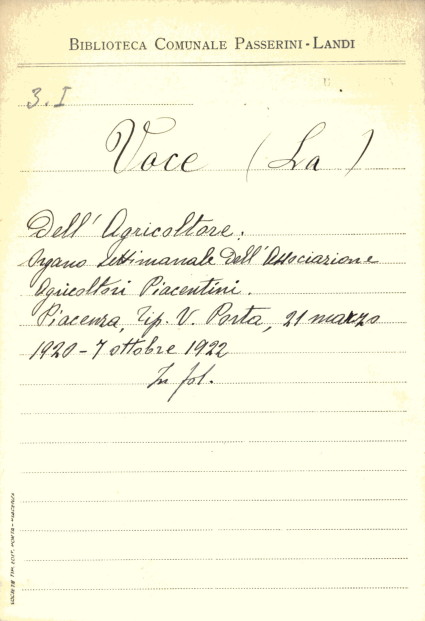 BIBLIOTECA COMUNALE PASSERINI-LANDI
3. I
Voce (La)
Dell' Agricoltore.
Organo settimanale Dell' Associazione
Agricoltori Piacentini.
Piacenza, Tip. V. Porta, 21 marzo
1920-7 ottobre 1922
In fol.